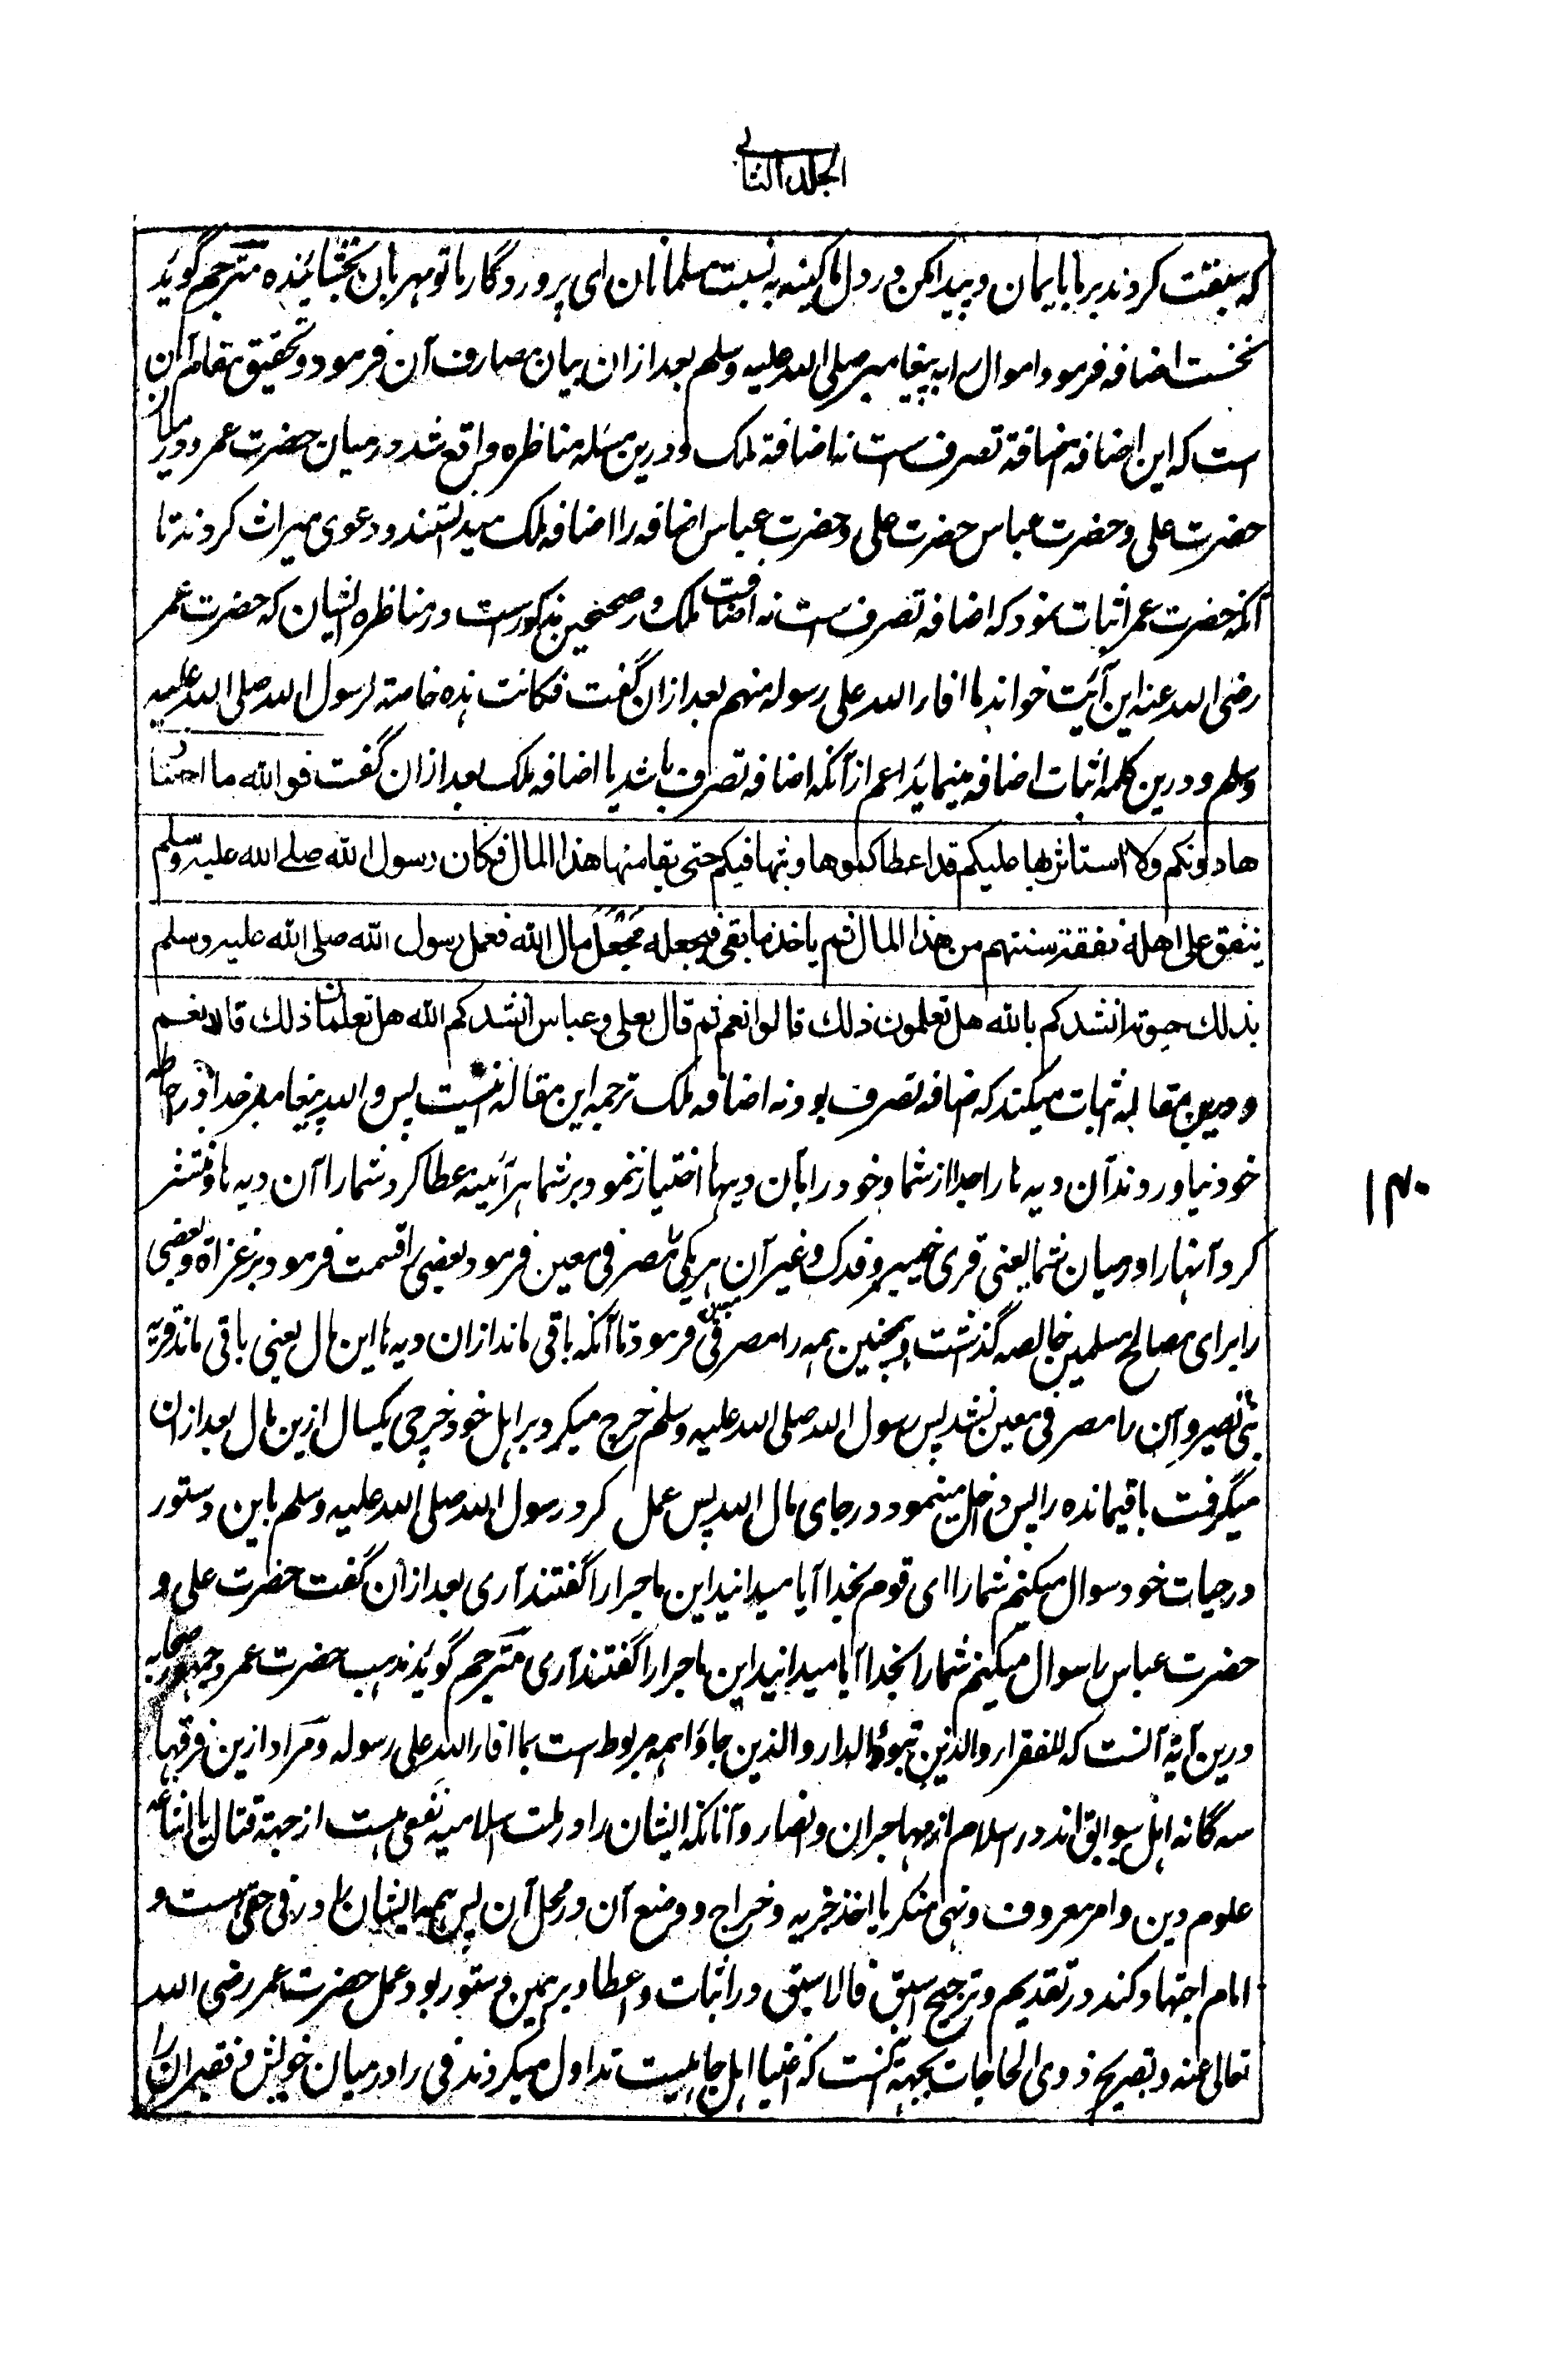 الجلد الثانی
که سبقت کردند بر ما بایمان و پیدا مکن در دل ما کینه به نسبت مسلمانان ای پروردگار ما تو مهربان بخشاینده مترجم گوید
نخست اضافه فرمود اموال را به پیغامبر صلی الله علیه وسلم بعد ازان بیان مصارف آن فرمود و تحقیق مقام آن
است که این اضافه اضافة تصرف است نه اضافة ملک و درین مسئله مناظره واقع شد درمیان حضرت عمر و درمیان
حضرت علی و حضرت عباس حضرت علی و حضرت عباس اضافه را اضافه ملک میدانستند و دعوی میراث کردند تا
آنکه حضرت عمر اثبات نمود که اضافه تصرف است نه اضافت ملک و در صحیحین مذکور است در مناظره ایشان که حضرت عمر
رضی الله عنه این آیت خواند ما افاء الله علی رسوله منهم بعد ازان گفت فکانت هذه خاصة لرسول الله صلی الله علیه
وسلم و درین کلمه اثبات اضافه مینماید اعم از آنکه اضافه تصرف باشد یا اضافه ملک بعد ازان گفت فوالله ما احتنا
ها دونکم ولا استاثر بها علیکم قد اعطاکموها وبثها فیکم حتی بقا منها هذا المال فکان رسول الله صلے الله علیه وسلم
ینفق علی اهله نفقة سنتهم من هذا المال ثم یاخذ ما بقی فیجعله مجعل مال الله فعمل رسول الله صلی الله علیه وسلم
بذلك حیوته انشدکم بالله هل تعلمون ذلك قالوا نعم ثم قال لعلی وعباس انشدکم الله هل تعلمان ذلك قالا نعم
و درین مقاله اثبات میکند که اضافه تصرف بود نه اضافه ملک ترجمه این مقاله اینست پس والله پیغامبر خدا در احاطه
خود نیاوردند آن دیه ها را جدا از شما و خود را بآن دیها اختیار ننمود بر شما هرآئینه عطا کرد شما را آن دیه ها و منتشر
کرد آنها را درمیان شما یعنی قری خیبر و فدک و غیر آن هر یکی مصرفی معین فرمود بعضی را قسمت فرمود بر غزاة و بعضی
را برای مصالح مسلمین خالصه گذاشت و همچنین همه را مصرفی معین فرمود تا آنکه باقی ماند ازان دیه ها این مال یعنی باقی ماند قریه
بنی نضیر و آن را مصرفی معین نشد پس رسول الله صلی الله علیه وسلم خرج میکرد بر اهل خود خرچی یکسال ازین مال بعد ازان
میگرفت باقیمانده را پس داخل مینمود در جای مال الله پس عمل کرد رسول الله صلی الله علیه وسلم باین دستور
در حیات خود سوال میکنم شما را ای قوم بخدا آیا میدانید این ماجرا را گفتند آری بعد ازان گفت حضرت علی و
حضرت عباس را سوال میکنم شما را بخدا آیا میدانید این ماجرا را گفتند آری مترجم گوید مذهب حضرت عمر و جمهور صحابه
درین آیة آنست که للفقراء والذین تبوؤا الدار والذین جاؤا همه مربوط است بما افاء الله علی رسوله و مراد ازین فرقهای
سه گانه اهل سوابق اند در اسلام از مهاجران و انصار و آنانکه ایشان را در ملت اسلامیه نفعی هست از جهة قتال یا اشاعه
علوم دین و امر معروف و نهی منکر یا اخذ جزیه و خراج و وضع آن در محل آن پس همه ایشان را در فی حقی است و
امام اجتهاد کند در تقدیم و ترجیح اسبق فالاسبق در اثبات و اعطا و بر همین دستور بود عمل حضرت عمر رضی الله
تعالی عنه و تصریح ذوی الحاجات بجهة آنست که اغنیا اهل جاهلیت تداول میکردند فی را درمیان خویش و فقیران را
۱۴۰